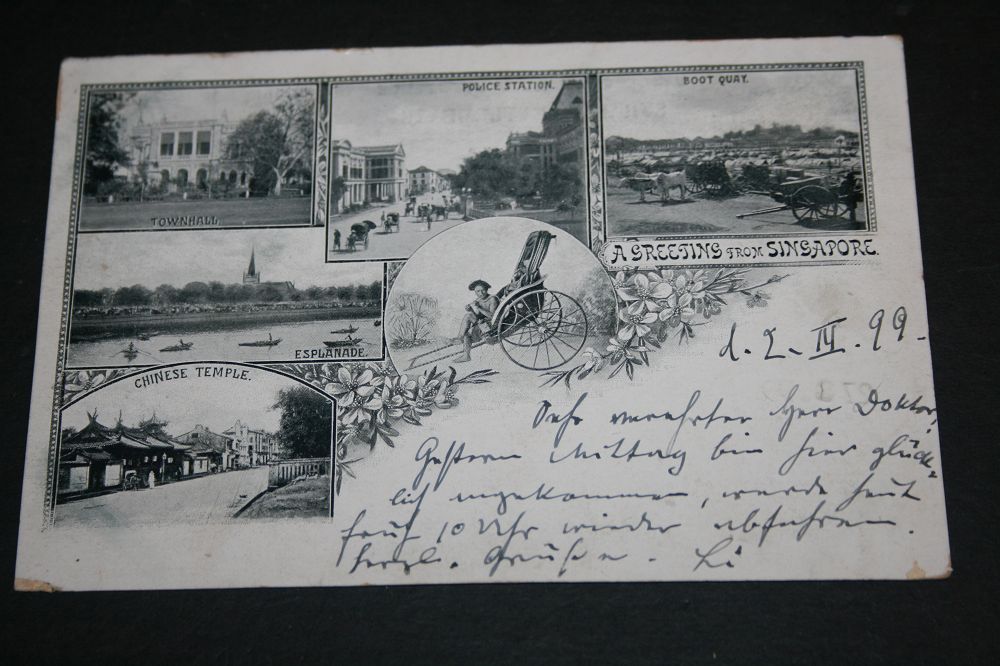 TOWNHALL.
POLICE STATION.
BOOT QUAY.
A GREETING FROM SINGAPORE.
ESPLANADE.
CHINESE TEMPLE.
d. 2. IV. 99.
Sehr verehrter Herr Doktor,
Gestern Mittag bin hier glück-
lich angekommen, werde heut
früh 10 Uhr wieder abfahren.
herzl. Grüße.